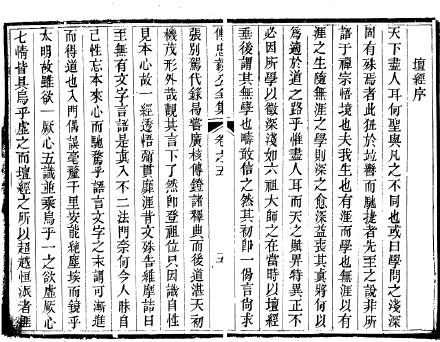 壇經序
天下盡人耳何聖與凡之不同也或曰學問之淺深
固有殊焉者此狂於垃聾而馳捷者先至之說非所
語于禪宗悟境也夫我生也有涯而學也無涯以有
涯之生隨無涯之學則深之愈深益喪其真將何以
為適於道之路乎惟盡人耳而天之賦畀特異正不
必因所學以徵深淺如六祖大師之在當時以壇經
垂後謂其無學也疇敢信之然其初即一偈言尚求
傅忠毅公全集 卷之五 五
張別駕代錄曷嘗廣核傳鐙諸釋典而後道湛天初
機茂形外哉觀其言下了然即登祖位只因識自性
見本心故一經透悟彌貫靡涯昔文殊告維摩詰曰
至無有文字言語是真入不二法門奈何今人昧自
己性忘本來心而馳騖乎語言文字之末謂可漸進
而得道也入門偶誤毫釐千里安能絕塵埃而鏡乎
太明故雖欲一厥心五識並乘烏乎一之欲虛厥心
七情皆具烏乎虛之而壇經之所以超越恒派者